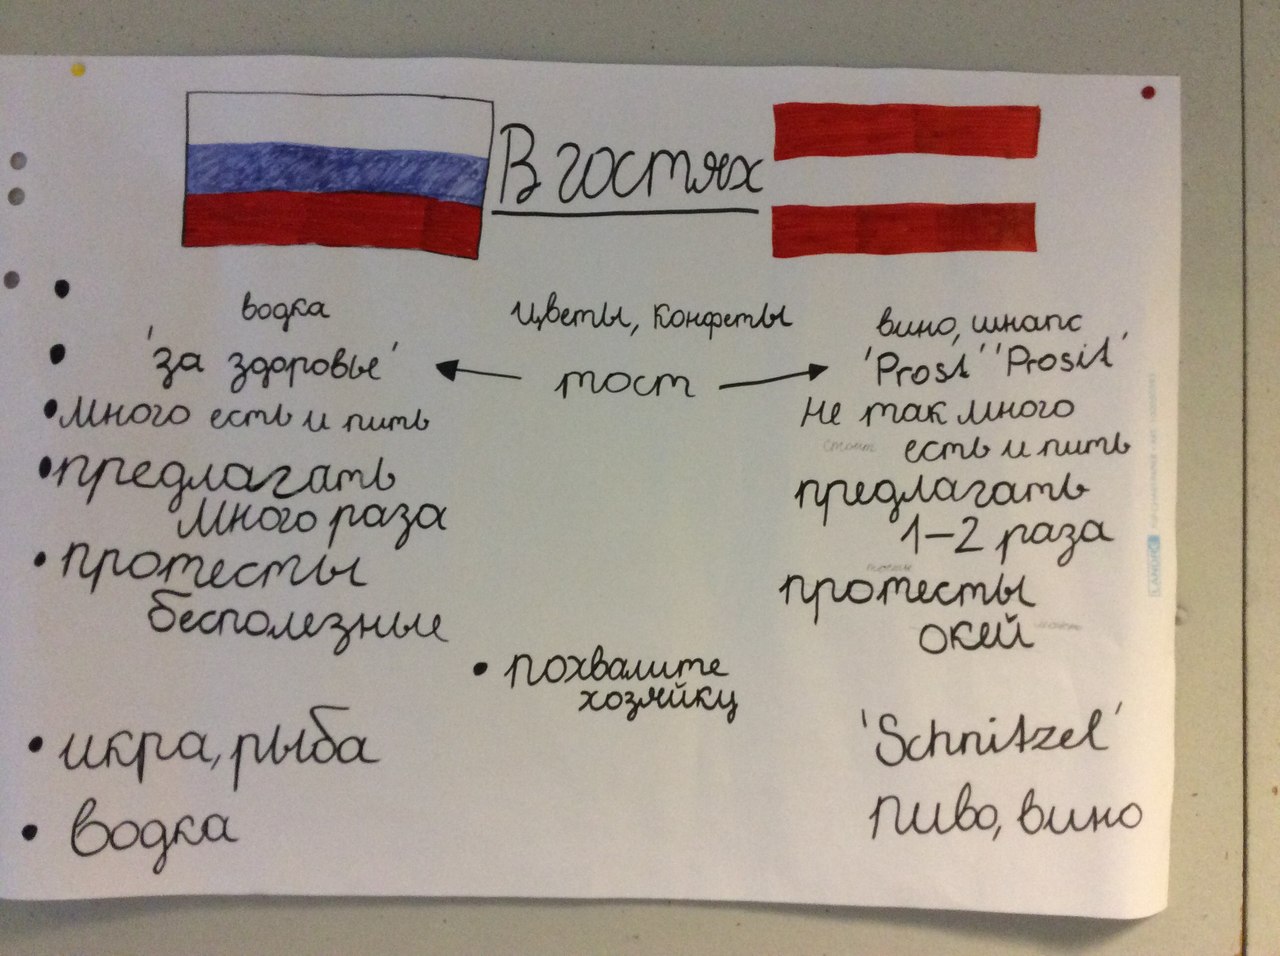 В гостях
водка
цветы, конфеты
вино, шнапс
'за здоровье'
тост
'Prost' 'Prosit'
много есть и пить
не так много
есть и пить
предлагать
много раза
предлагать
1–2 раза
протесты
бесполезные
протесты
окей
похвалите
хозяйку
икра, рыба
'Schnitzel'
водка
пиво, вино
LANDRÉ